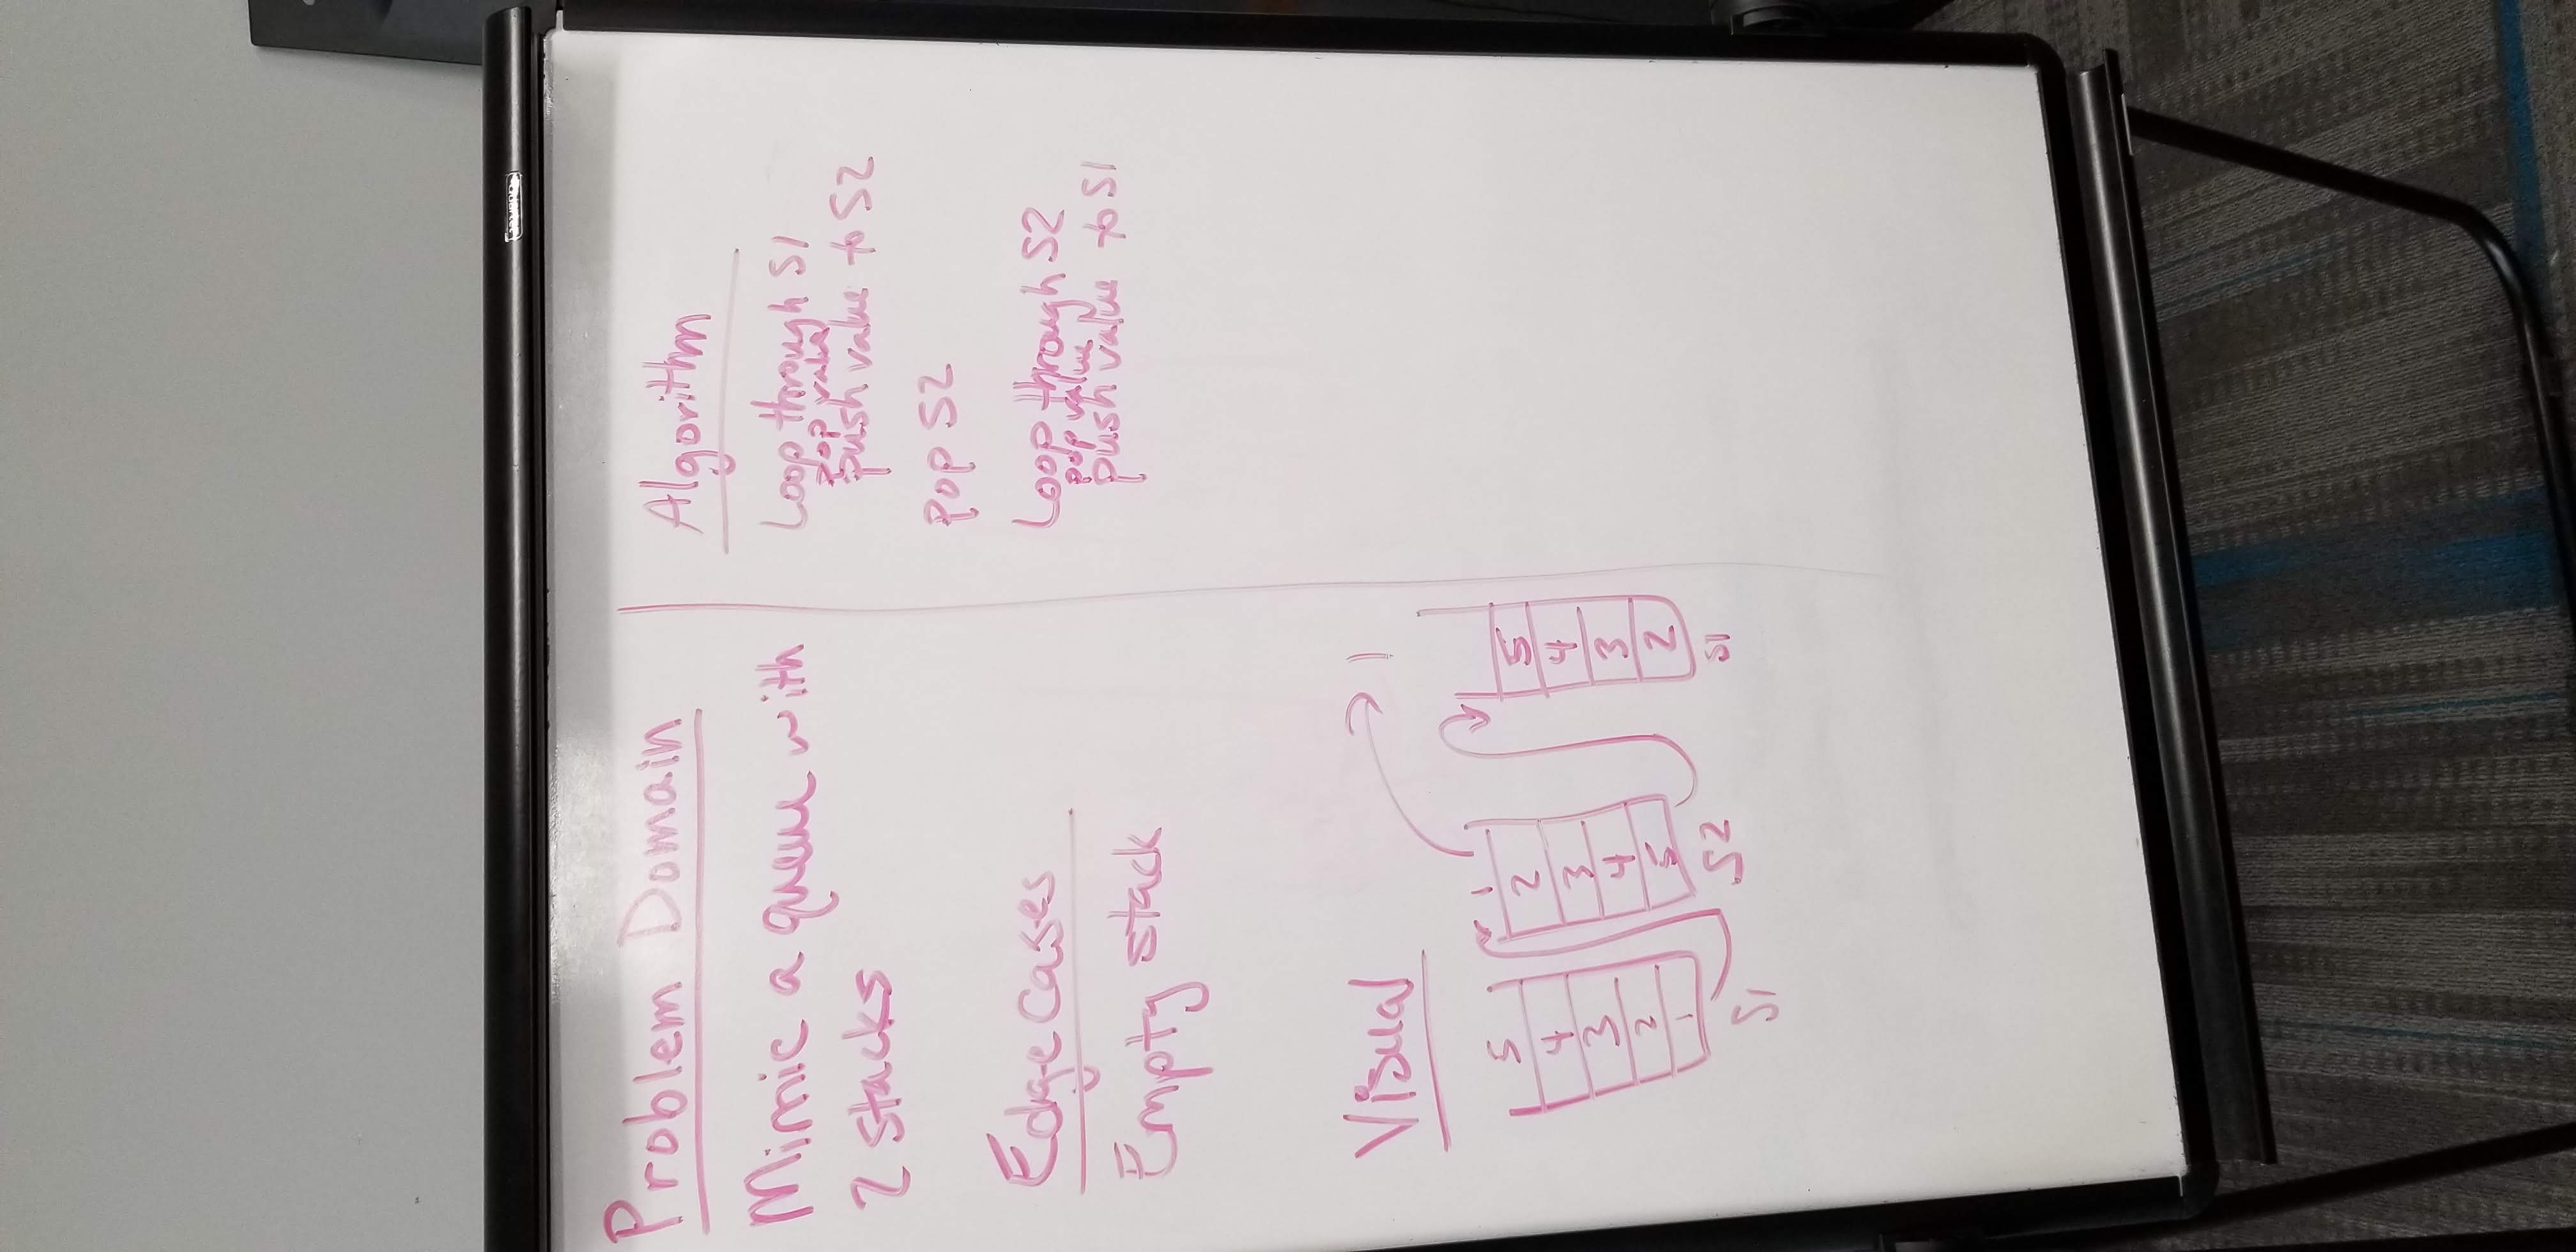 Quartet
Problem Domain
Mimic a queue with
2 stacks
Edge cases
Empty stack
Visual
1
5
4
3
2
1
S1
1
2
3
4
5
S2
5
4
3
2
S1
Algorithm
Loop through S1
pop value
push value to S2
pop S2
Loop through S2
pop value
push value to S1